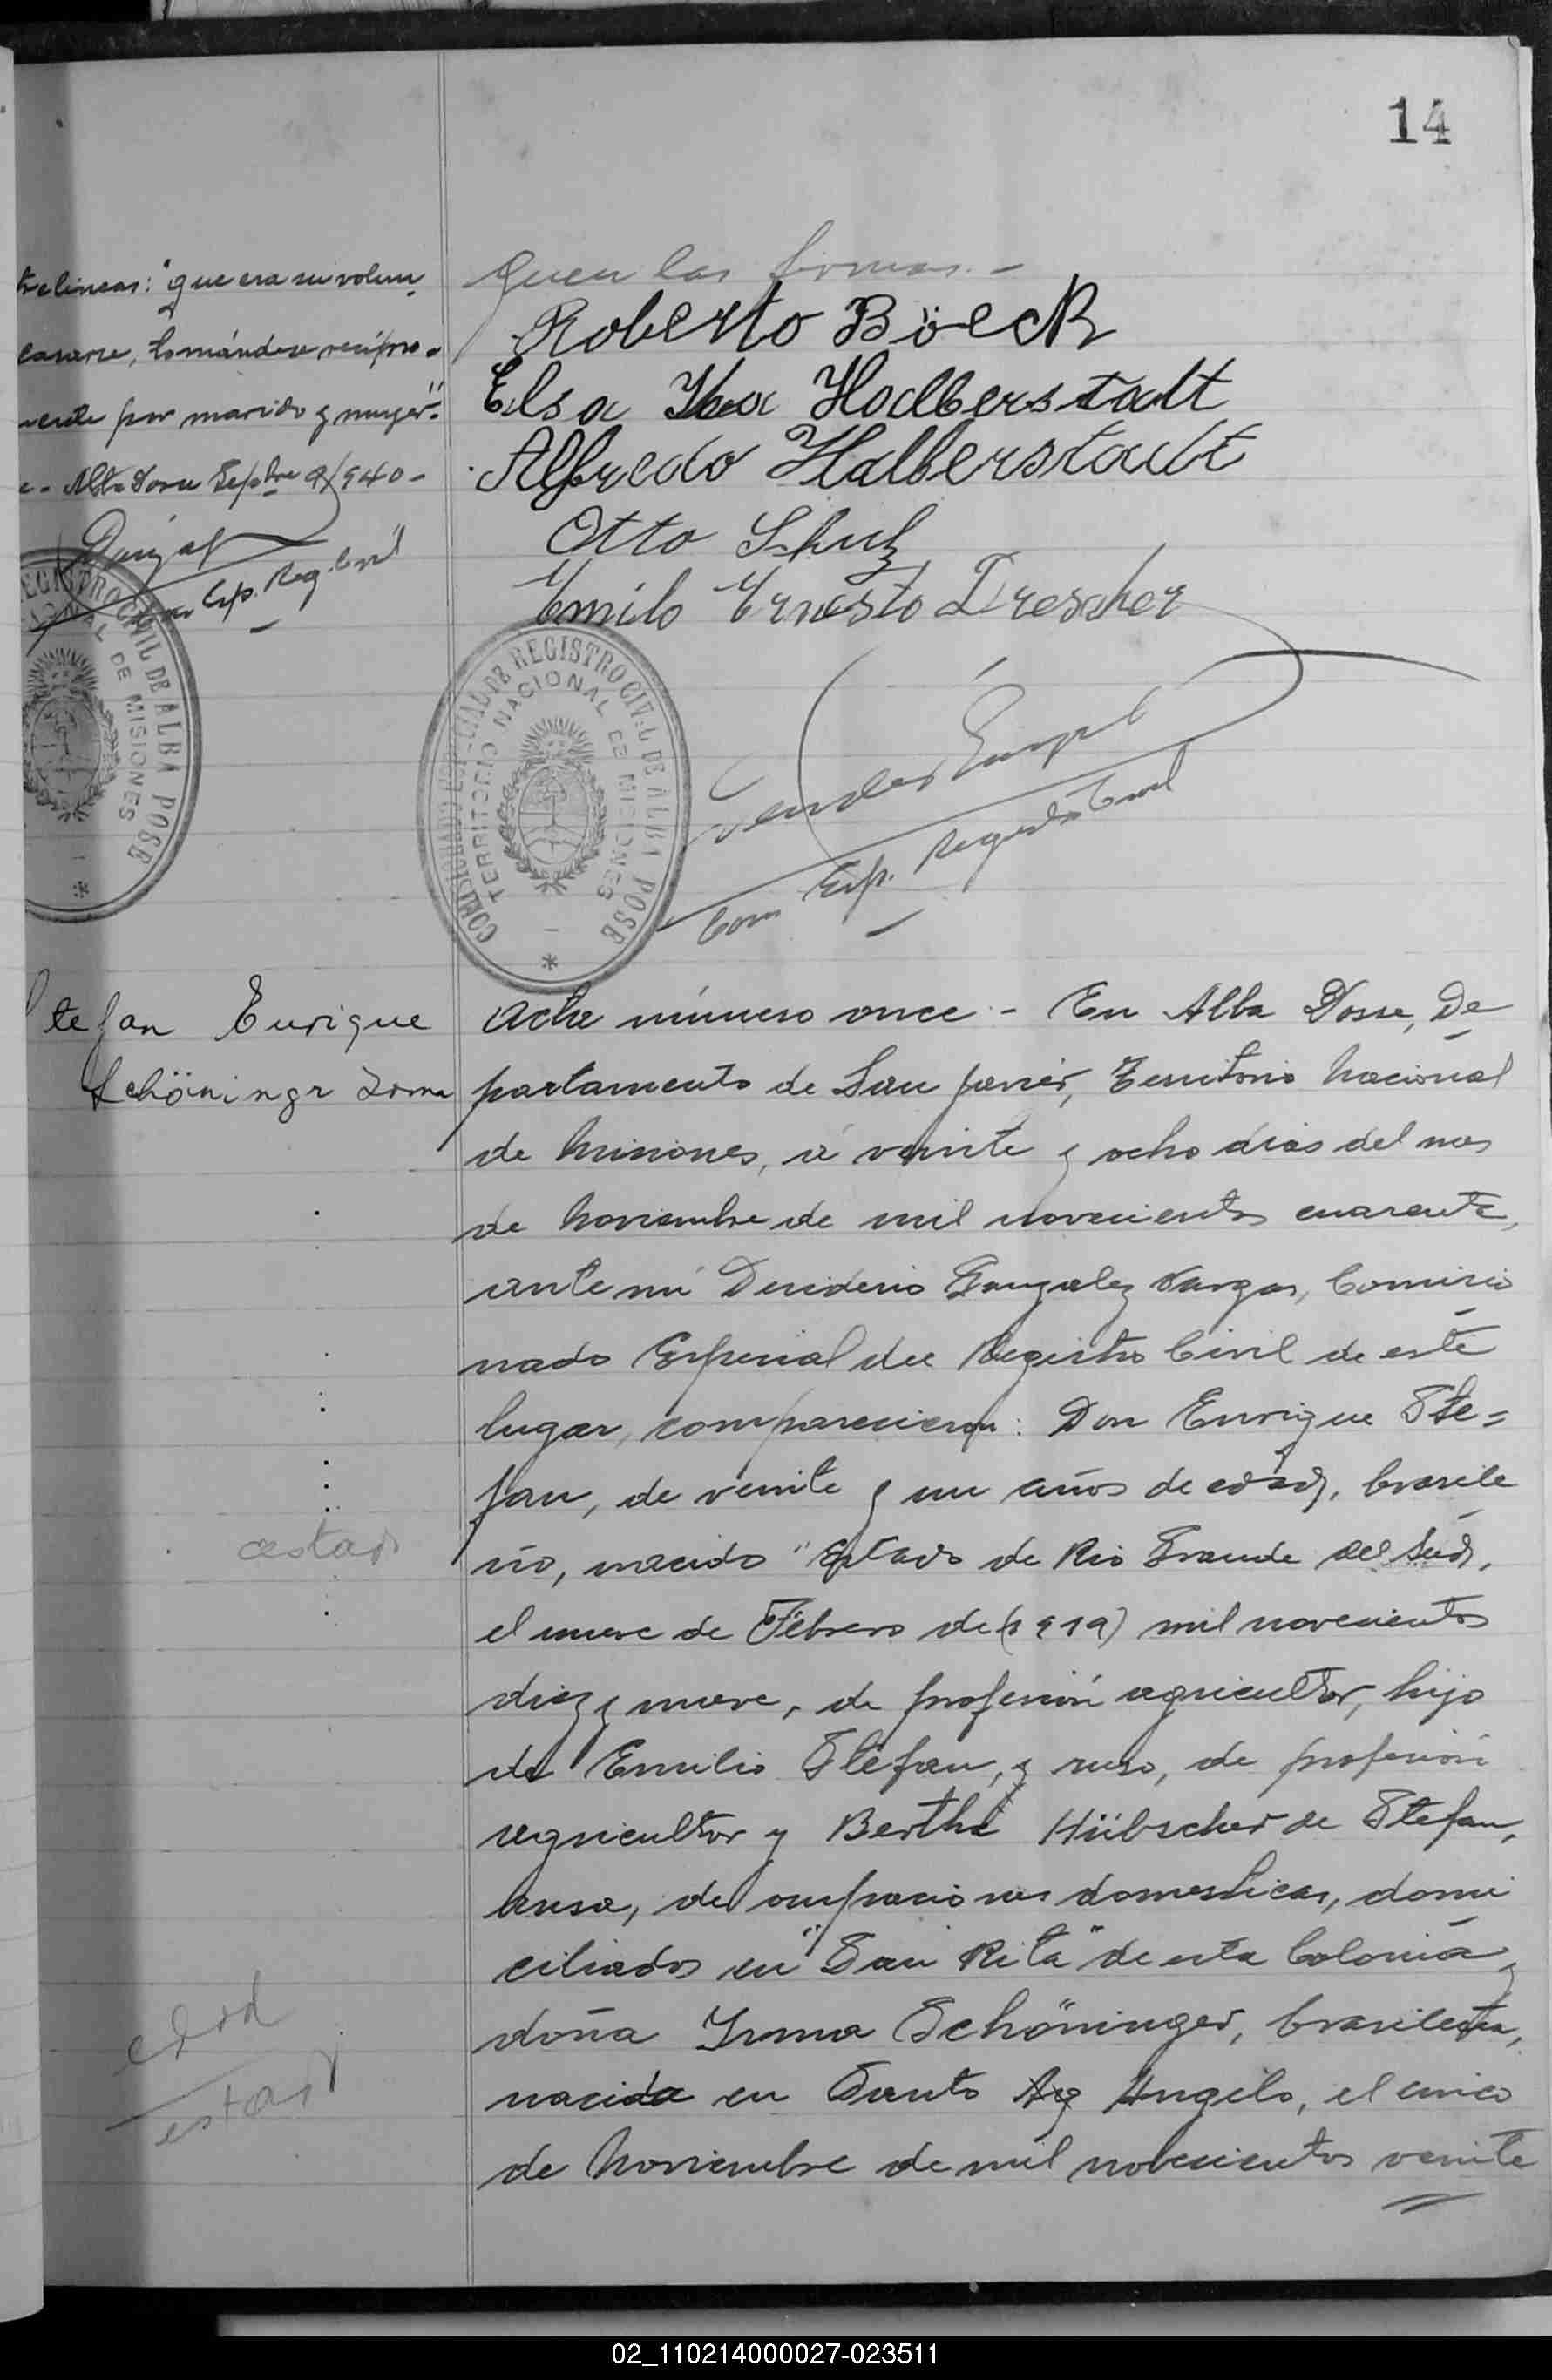 14
trelineas: "que era su volun
casarse, tomándose recípro-
mente por marido y mujer".
e.- Alba Posse Sepbre 9/940-
Esp. Reg. Civil
REGISTRO CIVIL DE ALBA POSE
NACIONAL DE MISIONES
quen las firmas.-
Roberto Böeck
Elsa Halberstadt
Alfredo Halberstadt
Otto Schulz
Emilo Ernesto Drescher
COMISIONADO ESPECIAL DE REGISTRO CIVIL DE ALBA POSE
TERRITORIO NACIONAL DE MISIONES
Com Esp. Registro Civil
Stefan Enrique
Schöningr Irma
Acta número once - En Alba Posse, De
partamento de San Javier, Territorio Nacional
de Misiones, a veinte y ocho dias del mes
de Noviembre de mil novecientos cuarenta,
ante mi Desiderio Gonzalez Vargas, Comisio
nado Especial del Registro Civil de este
lugar, comparecieron: Don Enrique Ste=
fan, de veinte y un años de edad, brasile
ño, nacido "Estado de Rio Grande del Sud,
el nueve de Febrero de (1919) mil novecientos
diez y nueve, de profesión agricultor, hijo
de Emilio Stefan, ruso, de profesión
agricultor y Bertha Hübscher de Stefan,
rusa, de ocupaciones domesticas, domi
ciliados en "San Rita" de esta Colonia y
doña Irma Schöninger, brasileña,
nacida en Santo Ag Angelo, el cinco
de Noviembre de mil novecientos veinte
estad
edad
estad
02_110214000027-023511